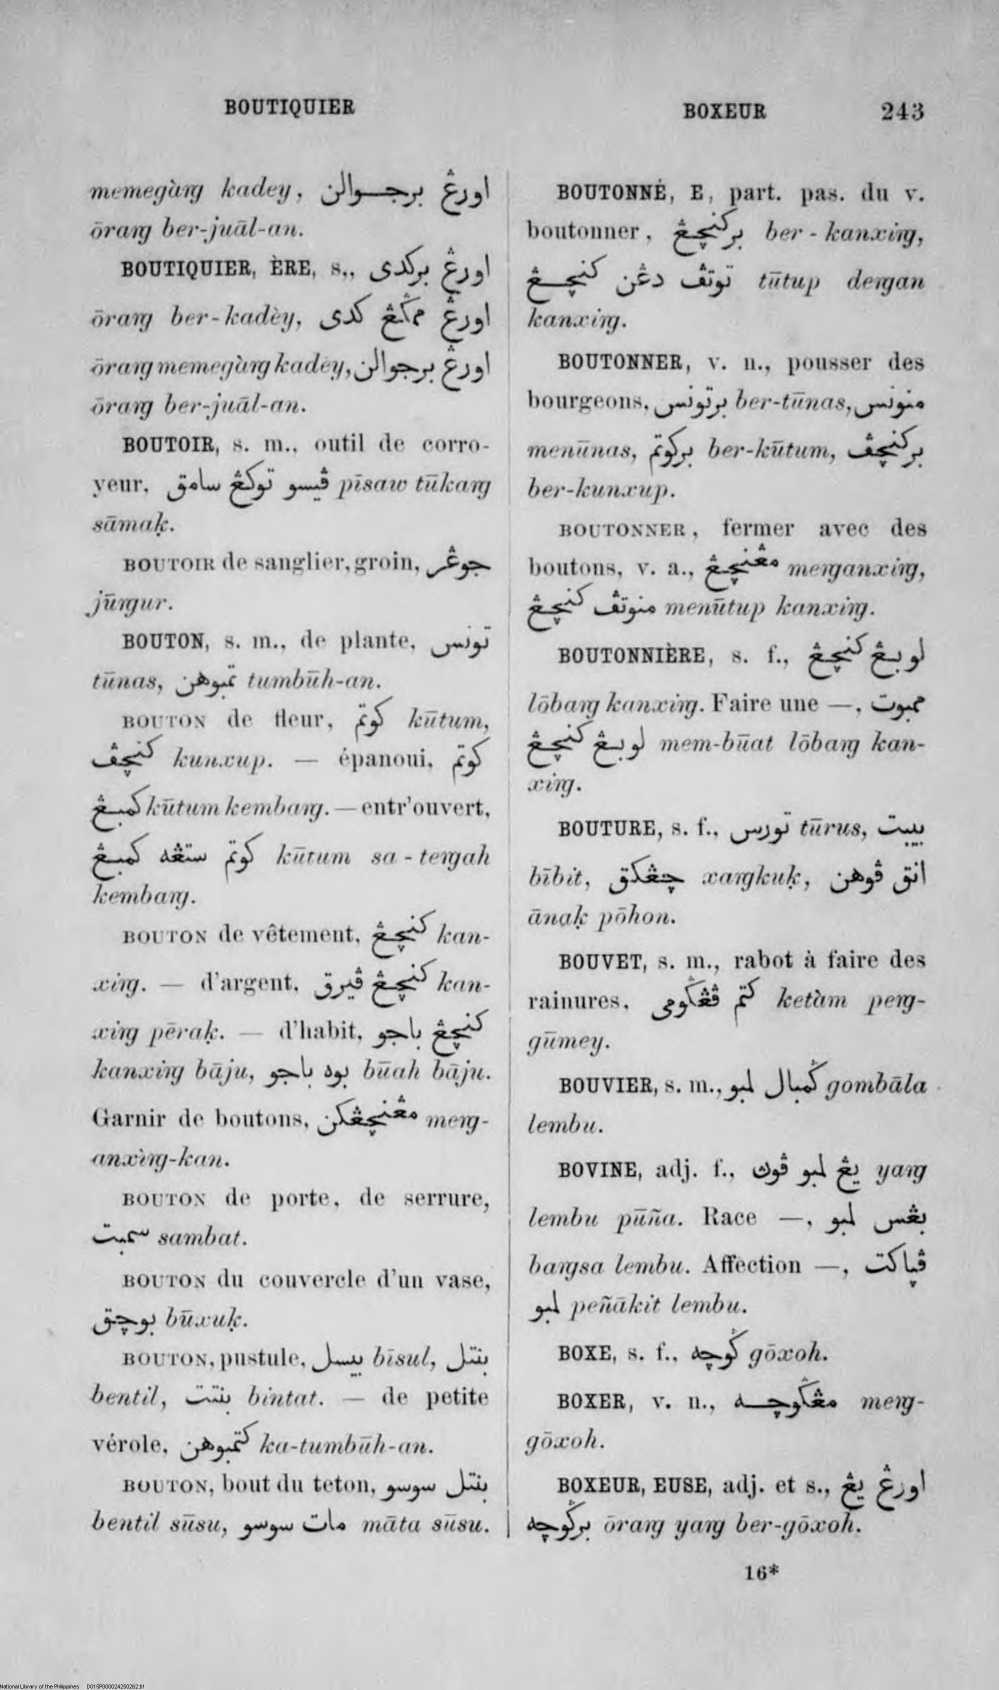 BOUTIQUIER
BOXEUR 243
memegàrg kadey, اورڠ برجوالن
ōrarg ber-juāl-an.
BOUTIQUIER, ÈRE, s., اورڠ برکدی
ōrarg ber-kadèy, اورڠ ممڬڠ کدی
ōrarg memegàrg kadéy, اورڠ برجوالن
ōrarg ber-juāl-an.
BOUTOIR, s. m., outil de corro-
yeur, ڤيسو توکڠ سامق pīsaw tūkarg
sāmaḳ.
BOUTOIR de sanglier, groin, جوڠر
jūrgur.
BOUTON, s. m., de plante, تونس
tūnas, تمبوهن tumbūh-an.
BOUTON de fleur, کوتم kūtum,
کنچڤ kunxup. — épanoui, کوتم
کمبڠ kūtum kembarg. — entr'ouvert,
کوتم ستڠه کمبڠ kūtum sa-tergah
kembarg.
BOUTON de vêtement, کنچڠ kan-
xirg. — d'argent, کنچڠ ڤيرق kan-
xirg pēraḳ. — d'habit, کنچڠ باجو
kanxirg bāju, بوه باجو būah bāju.
Garnir de boutons, مڠنچڠکن merg-
anxìrg-kan.
BOUTON de porte, de serrure,
سمبت sambat.
BOUTON du couvercle d'un vase,
بوچق būxuḳ.
BOUTON, pustule, بيسل bīsul, بنتل
bentil, بنتت bintat. — de petite
vérole, کتمبوهن ka-tumbūh-an.
BOUTON, bout du teton, بنتل سوسو
bentil sūsu, مات سوسو māta sūsu.
BOUTONNÉ, E, part. pas. du v.
boutonner, برکنچڠ ber-kanxirg,
توتڤ دڠن کنچڠ tūtup dergan
kanxirg.
BOUTONNER, v. n., pousser des
bourgeons, برتونس ber-tūnas, منونس
menūnas, برکوتم ber-kūtum, برکنچڤ
ber-kunxup.
BOUTONNER, fermer avec des
boutons, v. a., مڠنچڠ merganxirg,
منوتڤ کنچڠ menūtup kanxirg.
BOUTONNIÈRE, s. f., لوبڠ کنچڠ
lōbarg kanxirg. Faire une —, ممبوت
لوبڠ کنچڠ mem-būat lōbarg kan-
xirg.
BOUTURE, s. f., تورس tūrus, بيبت
bībit, چڠکق xargkuḳ, انق ڤوهن
ānaḳ pōhon.
BOUVET, s. m., rabot à faire des
rainures, کتم ڤڠڬومی ketàm perg-
gūmey.
BOUVIER, s. m., ڬمبال لمبو gombāla
lembu.
BOVINE, adj. f., يڠ لمبو ڤوڽ yarg
lembu pūña. Race —, بڠس لمبو
bargsa lembu. Affection —, ڤڽاکت
لمبو peñākit lembu.
BOXE, s. f., ڬوچه gōxoh.
BOXER, v. n., مڠڬوچه merg-
gōxoh.
BOXEUR, EUSE, adj. et s., اورڠ يڠ
برڬوچه ōrarg yarg ber-gōxoh.
16*
National Library of the Philippines